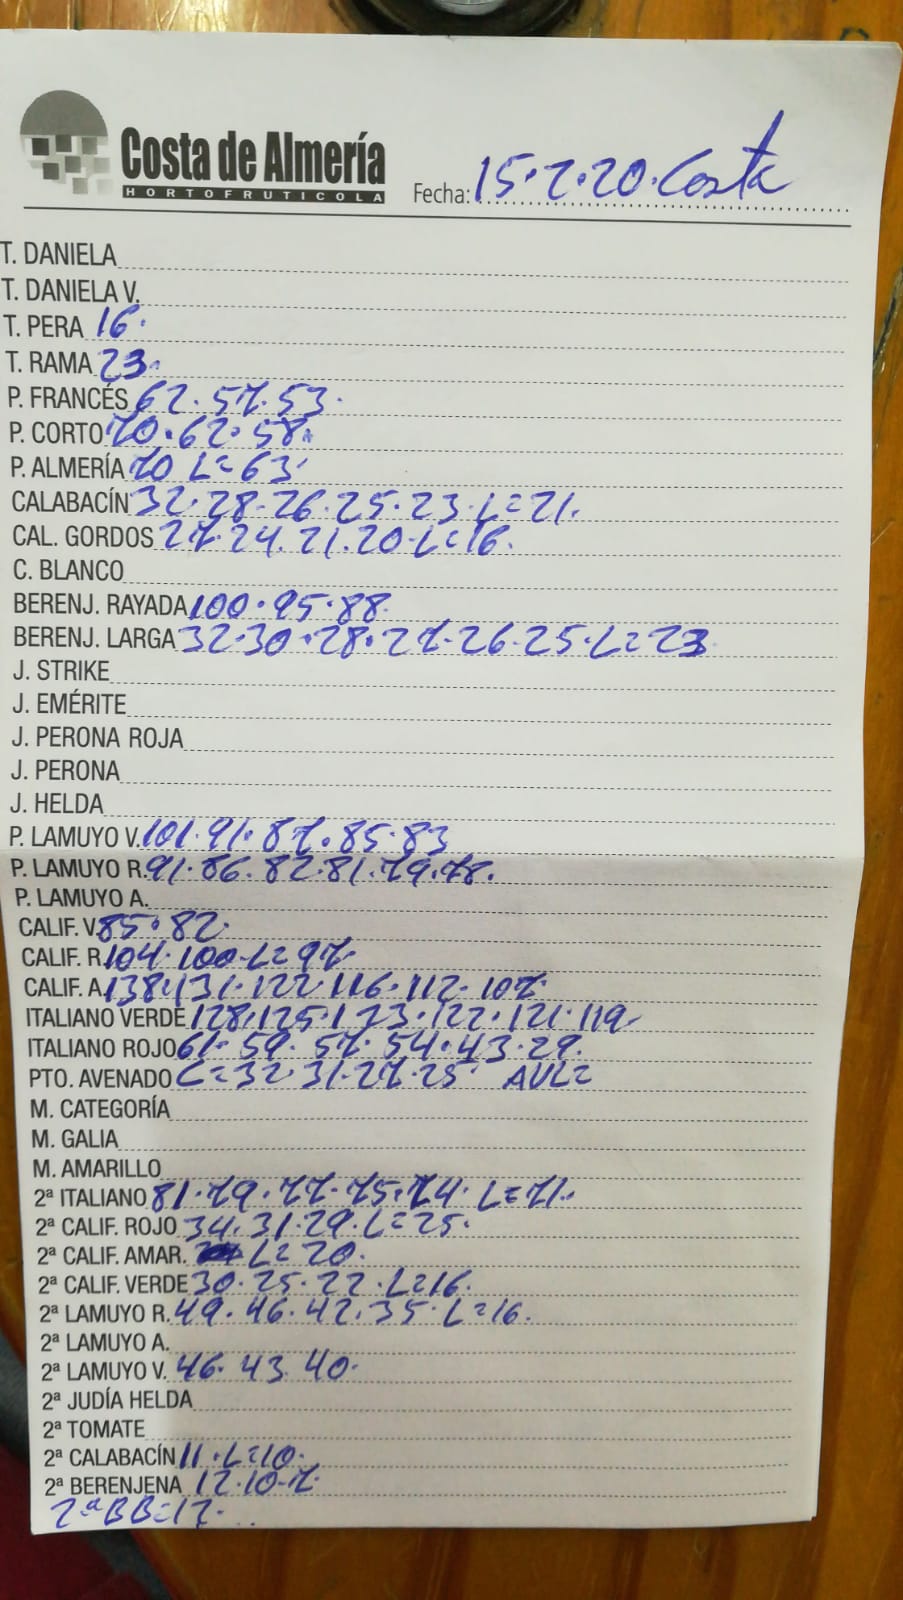 Costa de Almería
HORTOFRUTICOLA
Fecha: 15.2.20. Costa
T. DANIELA
T. DANIELA V.
T. PERA 16.
T. RAMA 23.
P. FRANCÉS 62. 57. 53.
P. CORTO 70. 62. 58.
P. ALMERÍA 70 L=63
CALABACÍN 32. 28. 26. 25. 23. L=21.
CAL. GORDOS 27. 24. 21. 20. L=16.
C. BLANCO
BERENJ. RAYADA 100. 95. 88.
BERENJ. LARGA 32. 30. 28. 27. 26. 25. L=23
J. STRIKE
J. EMÉRITE
J. PERONA ROJA
J. PERONA
J. HELDA
P. LAMUYO V. 101. 91. 87. 85. 83
P. LAMUYO R. 91. 86. 82. 81. 79. 78.
P. LAMUYO A.
CALIF. V. 85. 82.
CALIF. R. 104. 100. L=97.
CALIF. A. 138. 131. 122. 116. 112. 107.
ITALIANO VERDE 128. 125. 123. 122. 121. 119
ITALIANO ROJO 61. 59. 57. 54. 43. 29.
PTO. AVENADO C=32. 31. 27. 25 AVL=
M. CATEGORÍA
M. GALIA
M. AMARILLO
2ª ITALIANO 81. 79. 77. 75. 74. L=71.
2ª CALIF. ROJO 34. 31. 29. L=25.
2ª CALIF. AMAR. L=20.
2ª CALIF. VERDE 30. 25. 22. L=16.
2ª LAMUYO R. 49. 46. 42. 35. L=16.
2ª LAMUYO A.
2ª LAMUYO V. 46. 43. 40.
2ª JUDÍA HELDA
2ª TOMATE
2ª CALABACÍN 11. L=10.
2ª BERENJENA 12. 10. 7.
2ª BB=12.